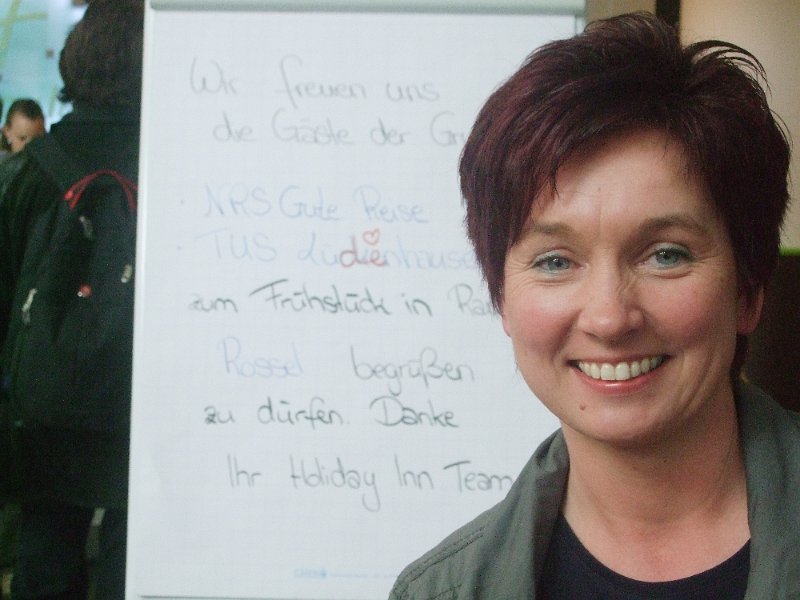 Wir freuen uns
die Gäste der
· NRS Gute Reise
· TUS Lüdienhause
zum Frühstück in
Rossel begrüßen
zu dürfen. Danke
Ihr Holiday Inn Team